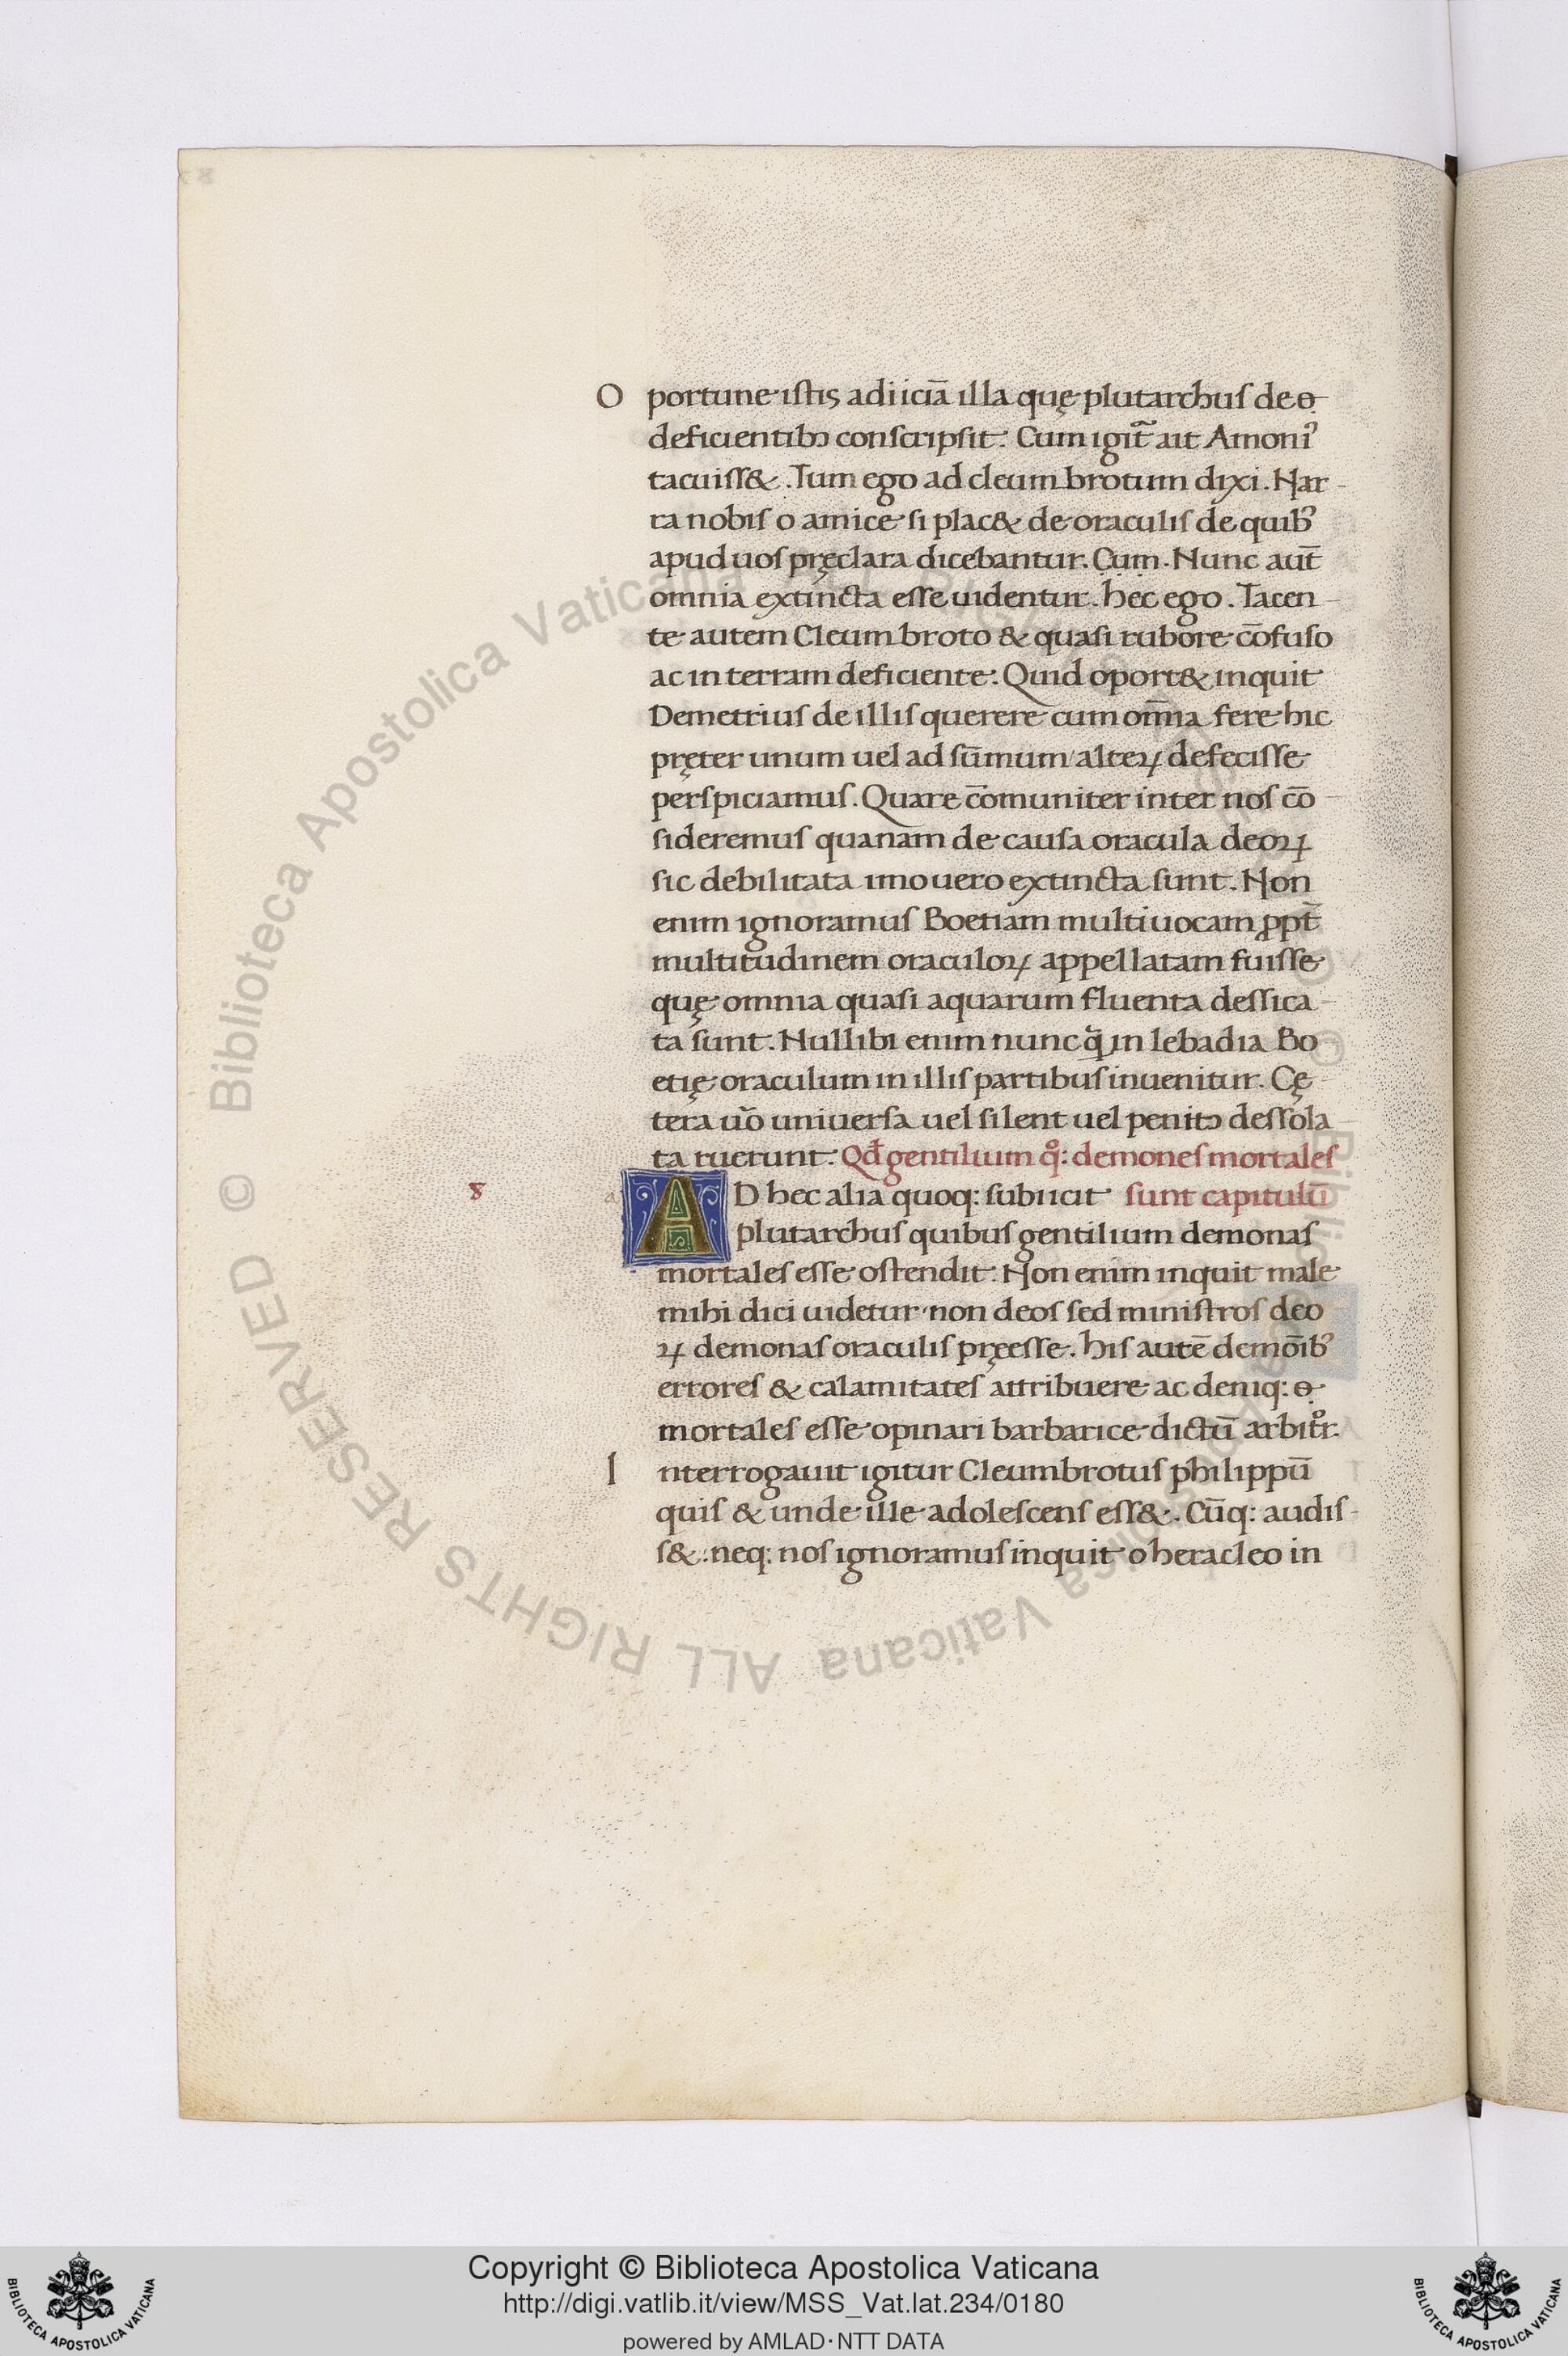 O portune istis adiiciā illa quę plutarchus de o
deficientibꝰ conscripsit: Cum igit̃ ait Amoniꝰ
tacuiss&. Tum ego ad cleumbrotum dixi. Nar-
ra nobis o amice si plac& de oraculis de quibꝰ
apud uos pręclara dicebantur. Cum. Nunc aut̄
omnia extincta esse uidentur. hęc ego. Tacen-
te autem Cleumbroto & quasi rubore cōfuso
ac in terram deficiente: Quid oport& inquit
Demetrius de illis querere cum om̄ia fere hic
pręter unum uel ad sūmum alteꝝ defecisse
perspiciamus. Quare cōmuniter inter nos cō-
sideremus quanam de causa oracula deoꝝ
sic debilitata imo uero extincta sunt. Non
enim ignoramus Boetiam multiuocam ꝓpt̄
multitudinem oraculoꝝ appellatam fuisse
quę omnia quasi aquarum fluenta dessica-
ta sunt. Nullibi enim nunc q̃ in lebadia Bo-
etię oraculum in illis partibus inuenitur. Cę-
tera uō uniuersa uel silent uel penitꝰ dessola-
ta ruerunt: Qđ gentilium qͦꝫ demones mortales
8 AD hec alia quoqꝫ subiicit sunt capitulū
plutarchus quibus gentilium demonas
mortales esse ostendit: Non enim inquit male
mihi dici uidetur non deos sed ministros deo
ꝝ demonas oraculis pręesse. his autē demōibꝰ
errores & calamitates attribuere ac deniqꝫ o
mortales esse opinari barbarice dictū arbitͦr.
I nterrogauit igitur Cleumbrotus philippū
quis & unde ille adolescens ess&. Cūqꝫ audis-
s&: neqꝫ nos ignoramus inquit o heracleo in
© Biblioteca Apostolica Vaticana ALL RIGHTS RESERVED
Copyright © Biblioteca Apostolica Vaticana
http://digi.vatlib.it/view/MSS_Vat.lat.234/0180
powered by AMLAD·NTT DATA
BIBLIOTECA APOSTOLICA VATICANA
BIBLIOTECA APOSTOLICA VATICANA